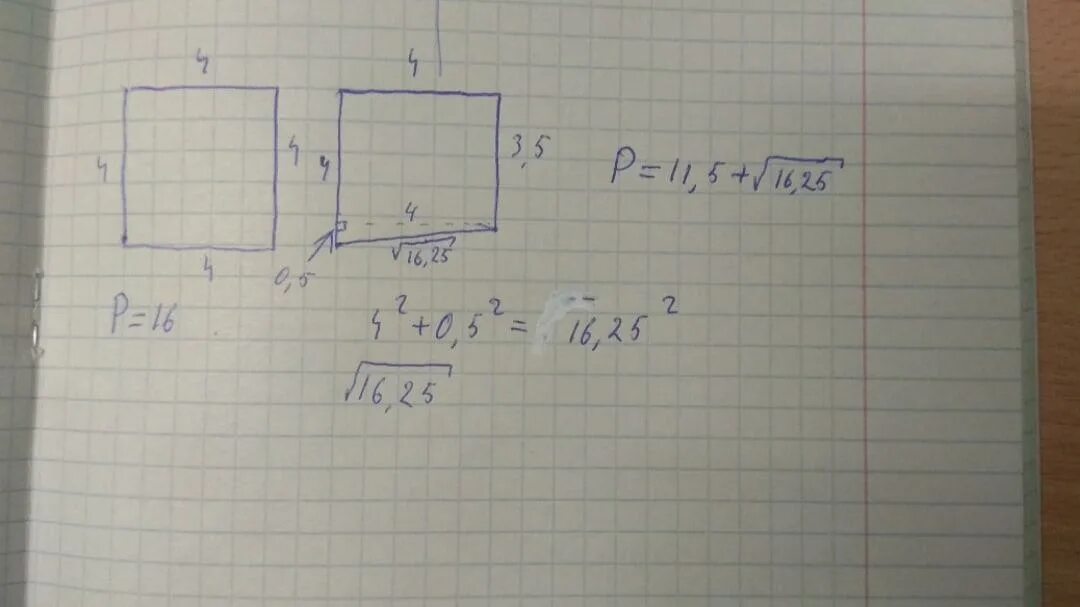 4
4
4
4
P=16
4
4
3,5
4
√16,25
0,5
P=11,5+√16,25
4²+0,5²= 16,25²
√16,25